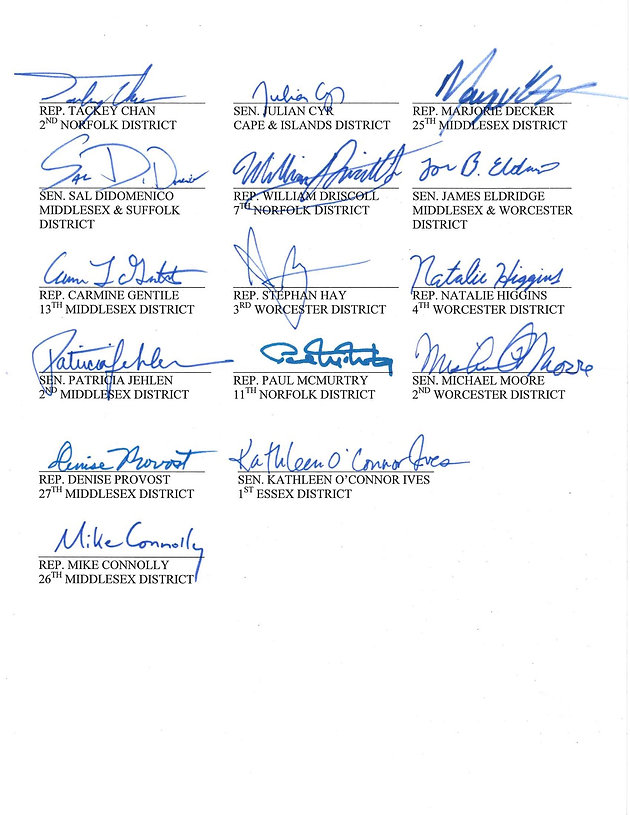 Julian Cyr
REP. TACKEY CHAN
2ND NORFOLK DISTRICT
SEN. JULIAN CYR
CAPE & ISLANDS DISTRICT
REP. MARJORIE DECKER
25TH MIDDLESEX DISTRICT
Sal D
SEN. SAL DIDOMENICO
MIDDLESEX & SUFFOLK
DISTRICT
William
REP. WILLIAM DRISCOLL
7TH NORFOLK DISTRICT
B. Eldridge
SEN. JAMES ELDRIDGE
MIDDLESEX & WORCESTER
DISTRICT
REP. CARMINE GENTILE
13TH MIDDLESEX DISTRICT
REP. STEPHAN HAY
3RD WORCESTER DISTRICT
Natalie Higgins
REP. NATALIE HIGGINS
4TH WORCESTER DISTRICT
Patricia Jehlen
SEN. PATRICIA JEHLEN
2ND MIDDLESEX DISTRICT
REP. PAUL MCMURTRY
11TH NORFOLK DISTRICT
Moore
SEN. MICHAEL MOORE
2ND WORCESTER DISTRICT
Denise Provost
REP. DENISE PROVOST
27TH MIDDLESEX DISTRICT
Kathleen O'Connor Ives
SEN. KATHLEEN O'CONNOR IVES
1ST ESSEX DISTRICT
Mike Connolly
REP. MIKE CONNOLLY
26TH MIDDLESEX DISTRICT